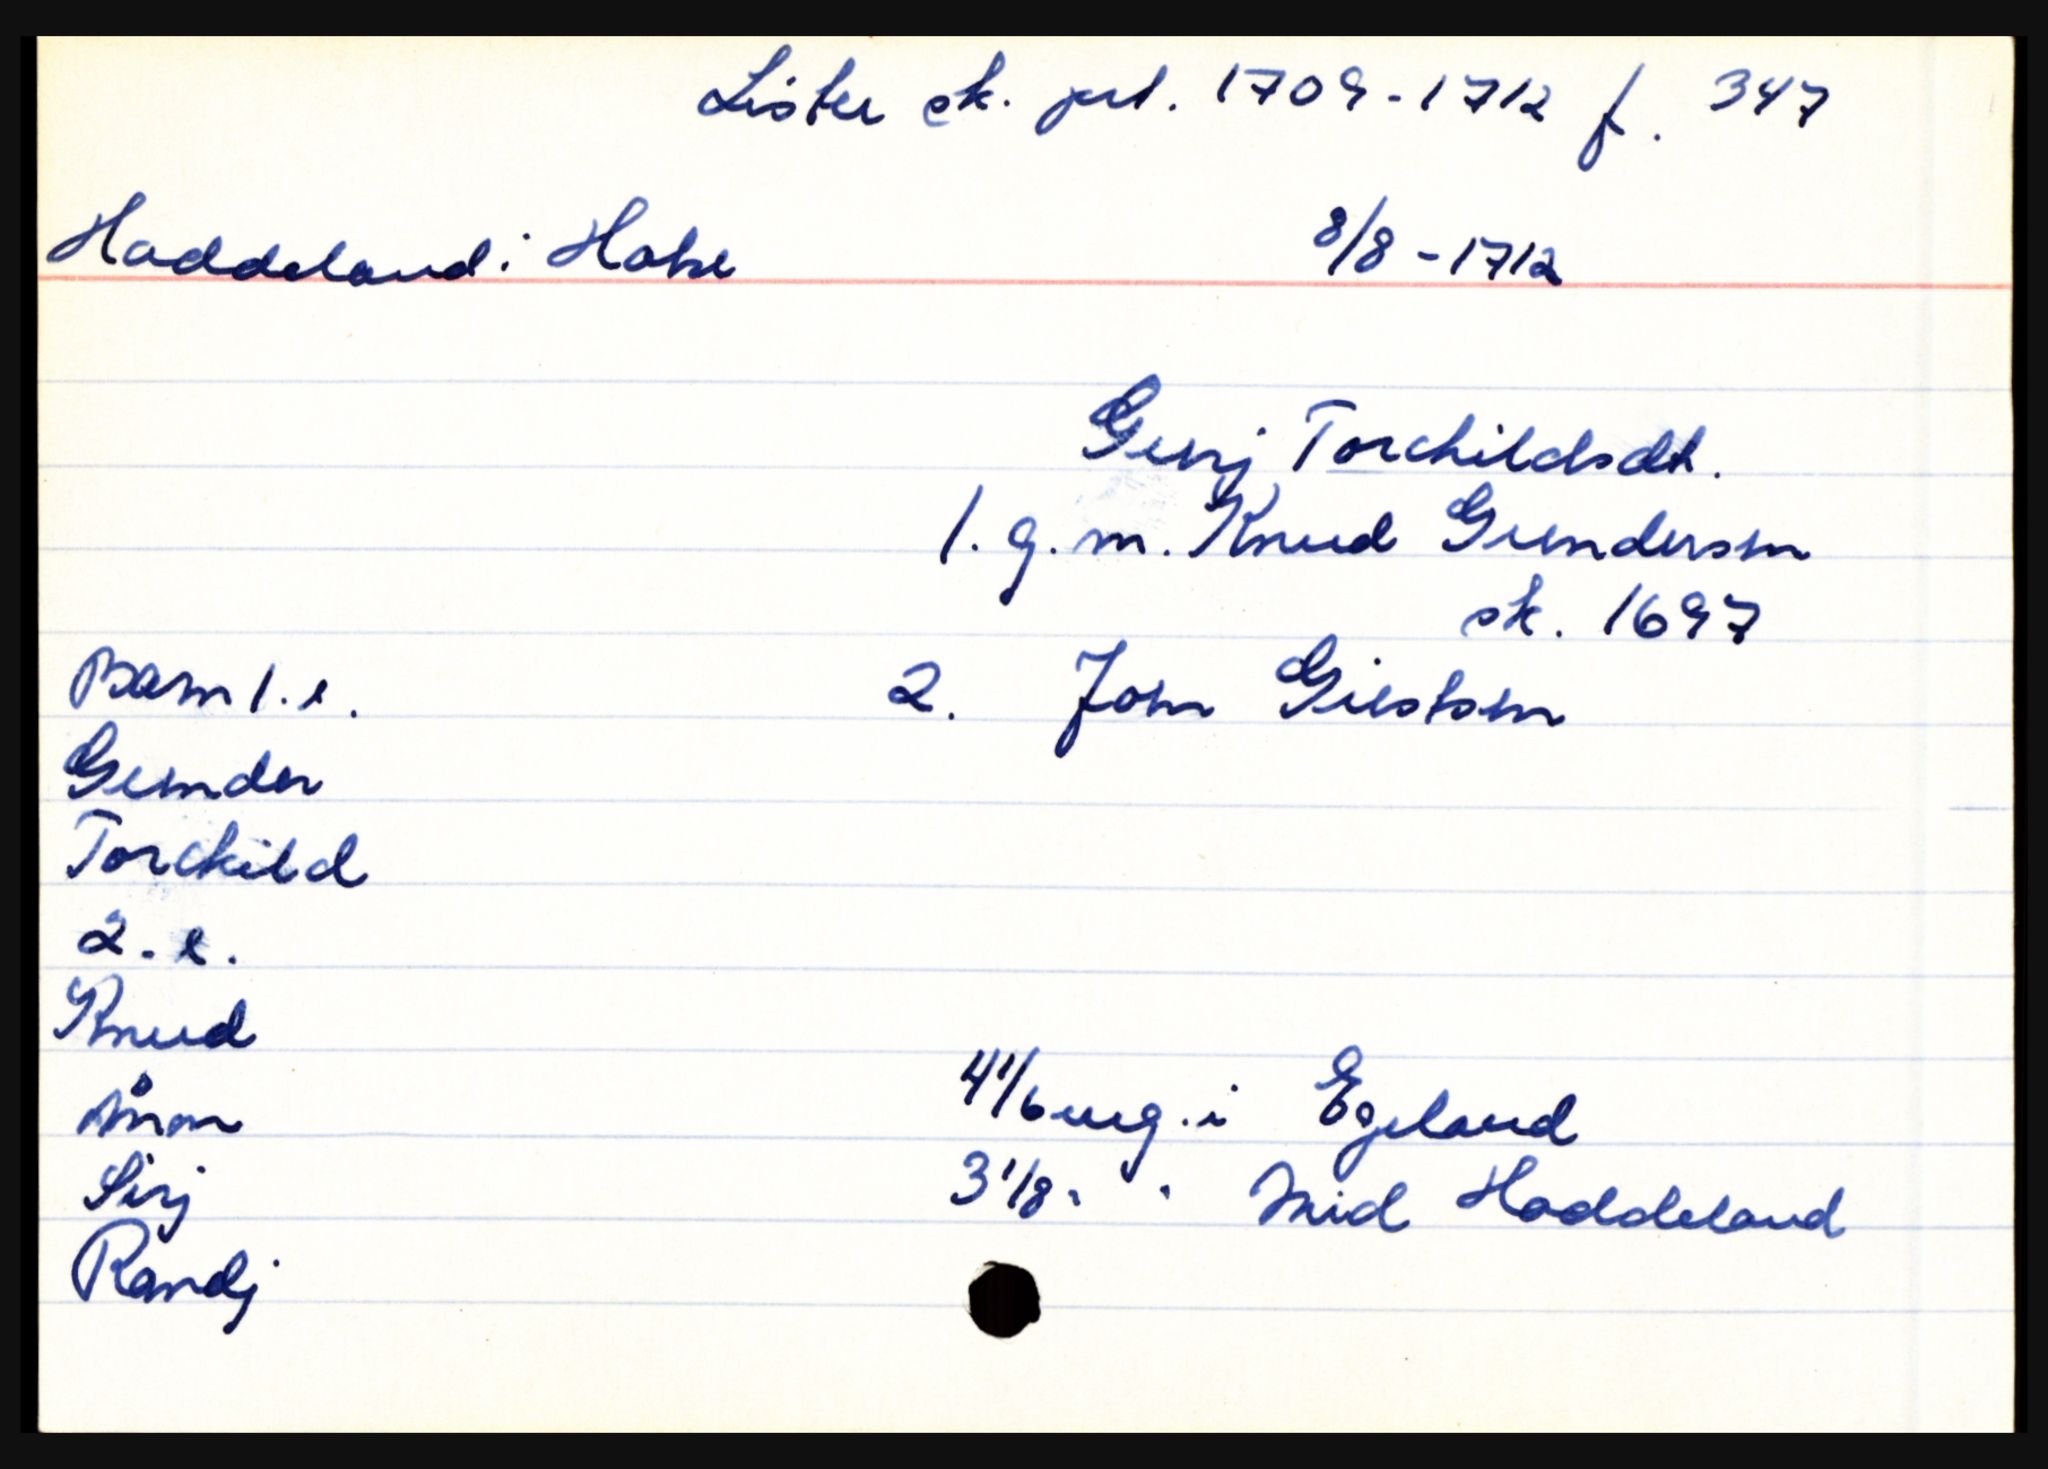 Lister sk. prt. 1709-1712 f. 347
Haddeland i Hakse 8/8 - 1712
Gurj Torchildsdt.
1. g. m. Knud Gundersen
sk. 1697
Barn 1. e. 2. Jom Giestsen
Gunder
Torchild
2. e.
Knud
Ånon 4 1/6 eug. i Egeland
Sirj 3 1/8 " " Mid Haddeland
Randj